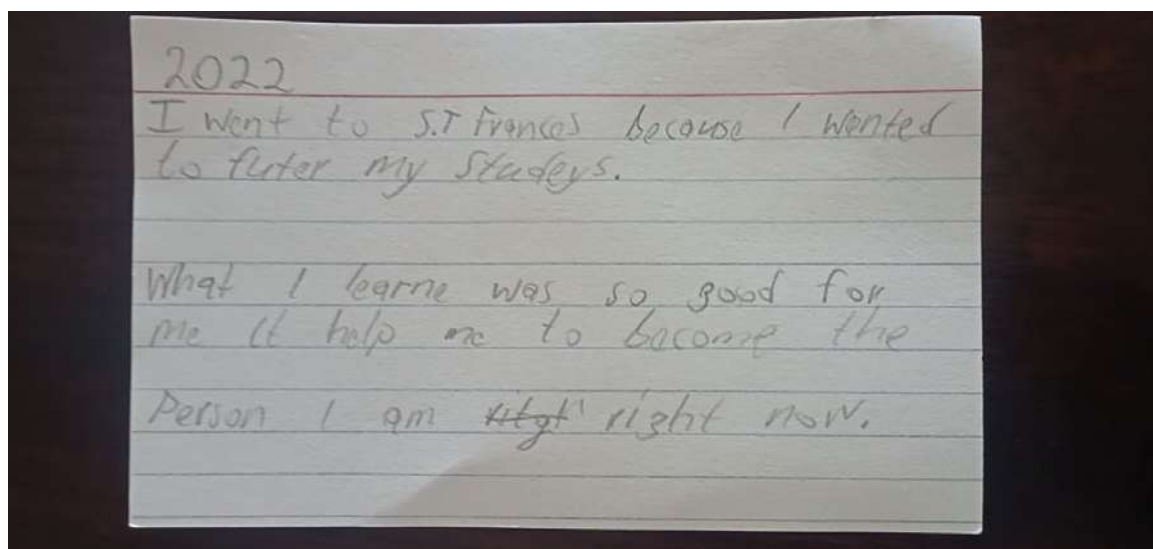 2022
I went to S.T Frances because I wanted
to futer my Studeys.
What I learne was so good for
me it help me to become the
Person I am right now.